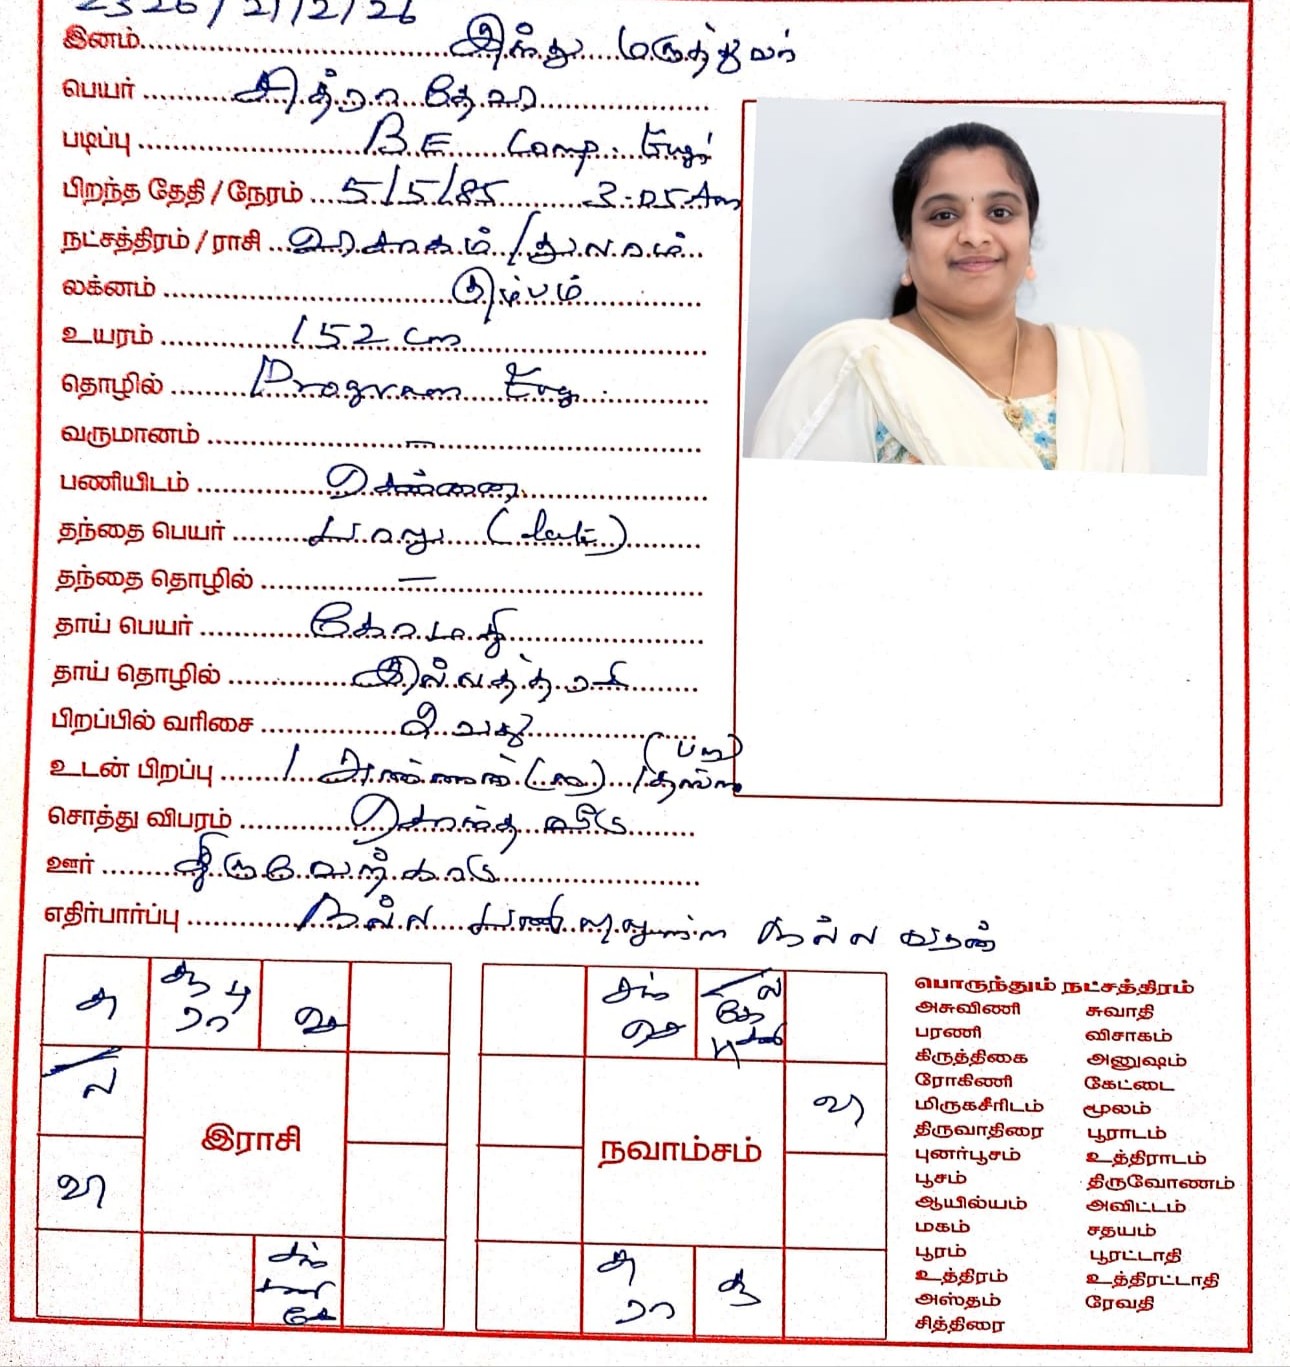 2326/21/2/26
இனம் இந்து மருத்துவர்
பெயர் சித்ரா தேவி
படிப்பு B.E Comp. Engr
பிறந்த தேதி / நேரம் 5/5/85 3.05 Am
நட்சத்திரம் / ராசி விசாகம் / துலாம்
லக்னம் கும்பம்
உயரம் 152 cm
தொழில் Program Eng.
வருமானம் —
பணியிடம் சென்னை
தந்தை பெயர் (Late)
தந்தை தொழில் —
தாய் பெயர் கோமதி
தாய் தொழில் இல்லத்தரசி
பிறப்பில் வரிசை 2 வது
உடன் பிறப்பு 1 அண்ணன் 1 தங்கை
சொத்து விபரம் சொந்த வீடு
ஊர் திருவேற்காடு
எதிர்பார்ப்பு நல்ல நல்ல வரன்
சு சூ பு ரா செ
ல
வி
சந் சனி கே
இராசி
சந் செ ல கே பு சனி
வி
சு ரா சூ
நவாம்சம்
பொருந்தும் நட்சத்திரம்
அசுவிணி சுவாதி
பரணி விசாகம்
கிருத்திகை அனுஷம்
ரோகிணி கேட்டை
மிருகசீரிடம் மூலம்
திருவாதிரை பூராடம்
புனர்பூசம் உத்திராடம்
பூசம் திருவோணம்
ஆயில்யம் அவிட்டம்
மகம் சதயம்
பூரம் பூரட்டாதி
உத்திரம் உத்திரட்டாதி
அஸ்தம் ரேவதி
சித்திரை